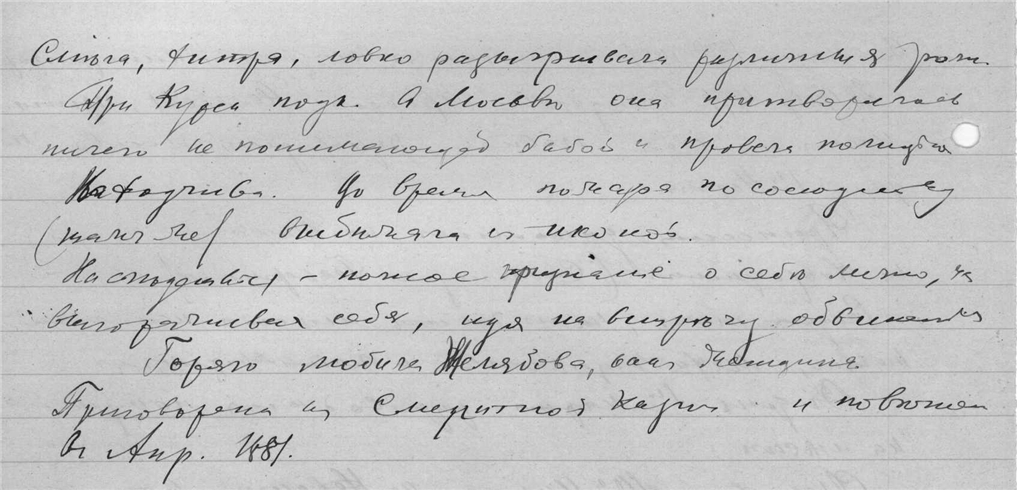 Смѣла, хитра, ловко разыгривала различныя роли.
При Курск. подк. в Москвѣ она притворилась
ничего не понимающей бабой и провела полицію
Находчива. Во время пожара по сосѣдству
выбѣжала съ иконой.
На – полное признаніе о себѣ лично, не
выгораживая себя, идя на встрѣчу обвиненія
Горячо любила Желябова, какъ женщина
Приговорена къ Смертной Казни и повѣшена
Апр. 1881.